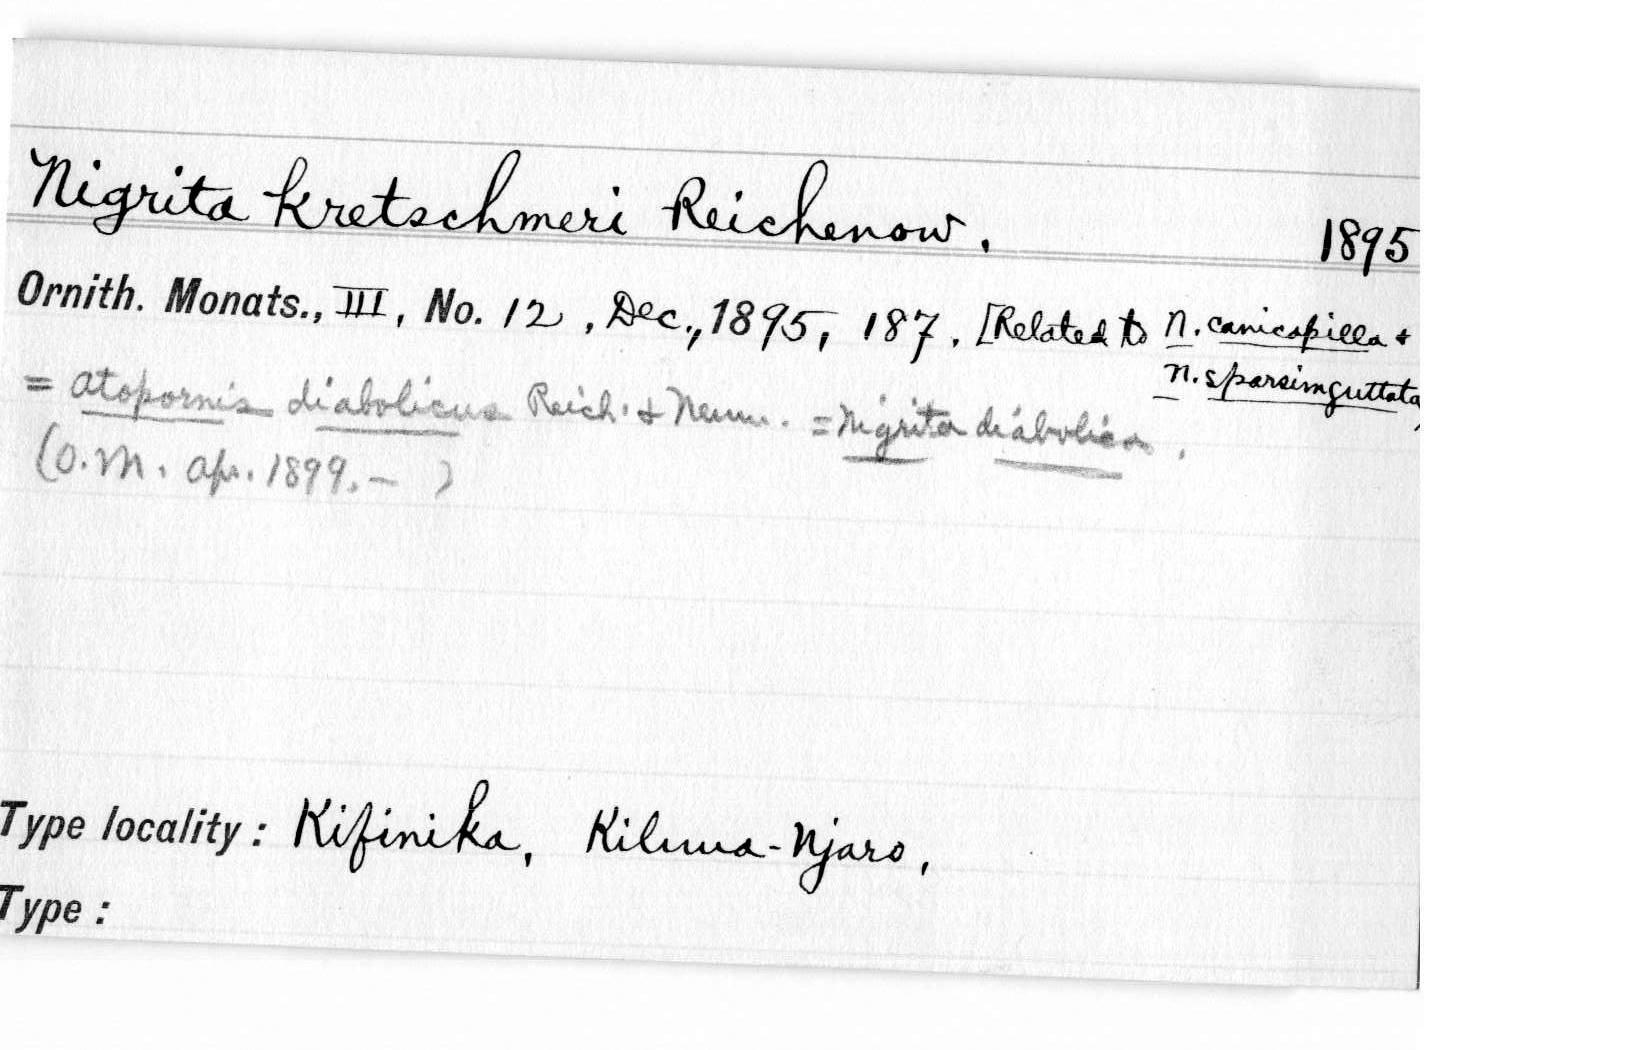 Nigrita kretschmeri Reichenow. 1895
Ornith. Monats., III, No. 12, Dec., 1895, 187. [Related to N. canicapilla +
N. sparsimguttata
= Atopornis diabolicus Reich. + Neum. = Nigrita diabolica.
(O.M. Apr. 1899. — )
Type locality: Kifinika, Kilima-Njaro,
Type: